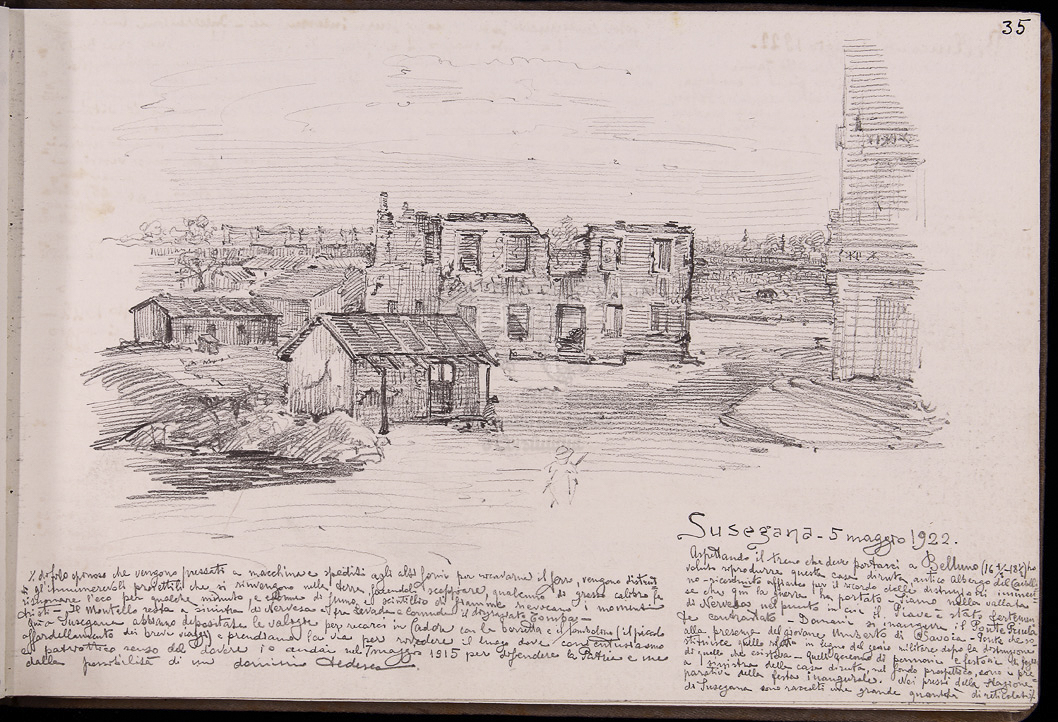 35
Susegana - 5 maggio 1922.
Aspettando il treno che deve portarci a Belluno (16½-18½) ho
voluto riprodurre questa casa diruta, antico albergo del Castello
no - ricostruito affianco per il ricordo delle distruzioni immense
se che qui la guerra ha portato. Siamo nella vallata
di Nervesa nel punto in cui il Piave è stato fortemen
te contrastato - Domani si inaugura il Ponte Priula
alla presenza del giovane Umberto di Savoia - Ponte che so
stituisce quello fatto in legno dal genio militare dopo la distruzione
di quello che esisteva - quell'accenno di pennoni e festoni
a sinistra della casa diruta, nel fondo prospettico, sono i pre
parativi della festa inaugurale. Nei pressi della stazione
di Susegana sono raccolti una grande quantità di reticolati
che vengono pressati a macchina e spediti agli alti forni per ricavarne il ferro, vengono distrut
ti gli innumerevoli proiettili che si rinvengono nelle terre facendoli scoppiare, qualcuno di grosso calibro fa
risuonare l'eco per qualche minuto, e colonne di fumo e scintillio di fiamme rievocano i momenti
Il Montello resta a sinistra di Nervesa e fra Servada e Conrada il disgraziato Comba
Qui a Susegana abbiamo depositate le valigie per recarci in Cadore con la borsetta e il (il piccolo
affardellamento dei brevi viaggi) e prendiamo la via per rivedere il luogo dove con entusiasmo
e patriottico senso del dovere io andai nel 7 maggio 1915 per difendere la Patria e me
dalla possibilità di un dominio tedesco